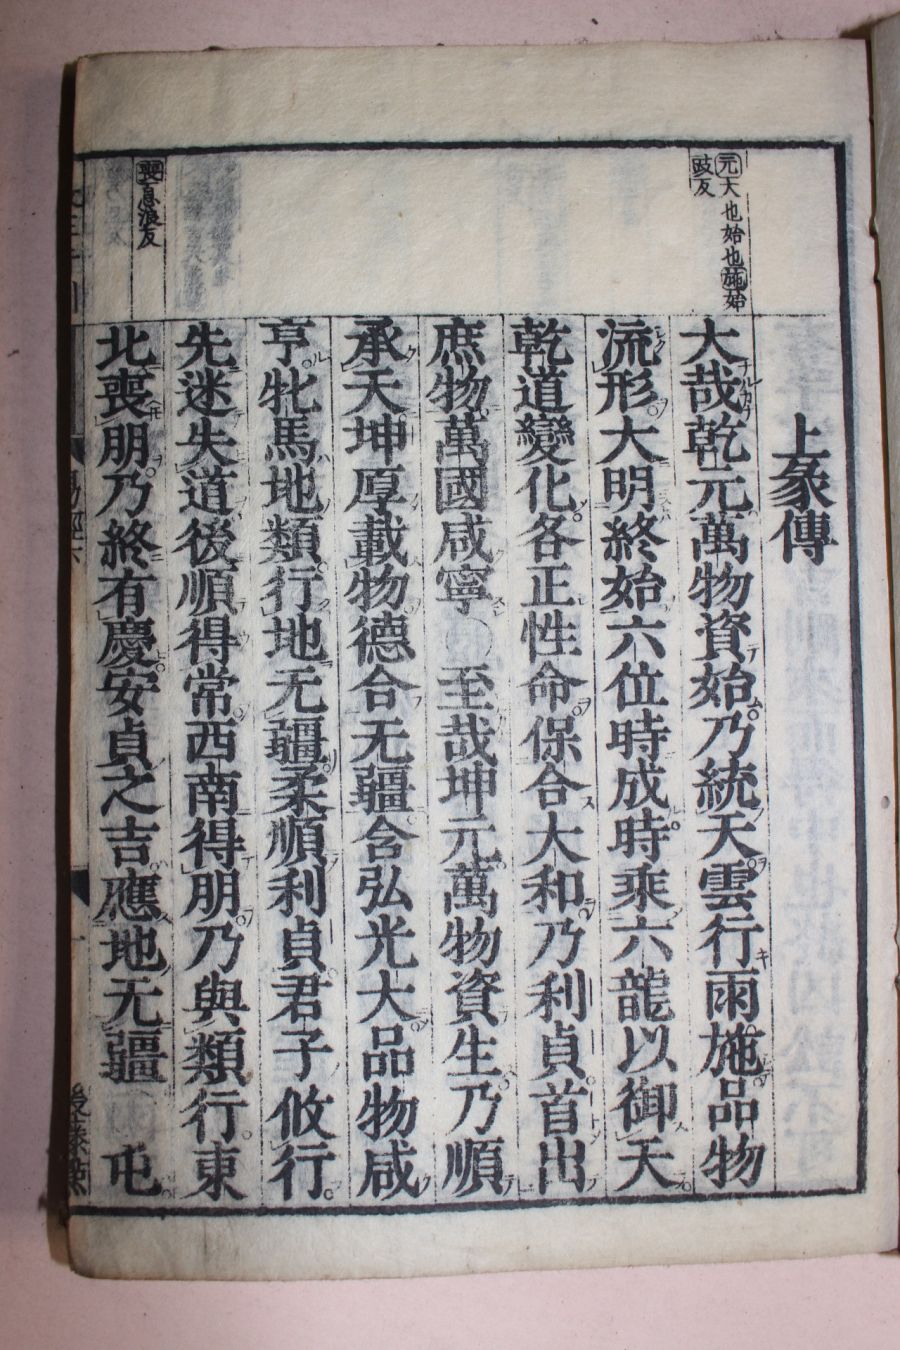 上彖傳
元大也始也施始
豉反
大哉乾元萬物資始乃統天雲行雨施品物
流形大明終始六位時成時乘六龍以御天
乾道變化各正性命保合大和乃利貞首出
庶物萬國咸寧 至哉坤元萬物資生乃順
承天坤厚載物德合无疆含弘光大品物咸
亨牝馬地類行地无疆柔順利貞君子攸行
先迷失道後順得常西南得朋乃與類行東
北喪朋乃終有慶安貞之吉應地无疆 屯
喪息浪反
易經六
後藤點